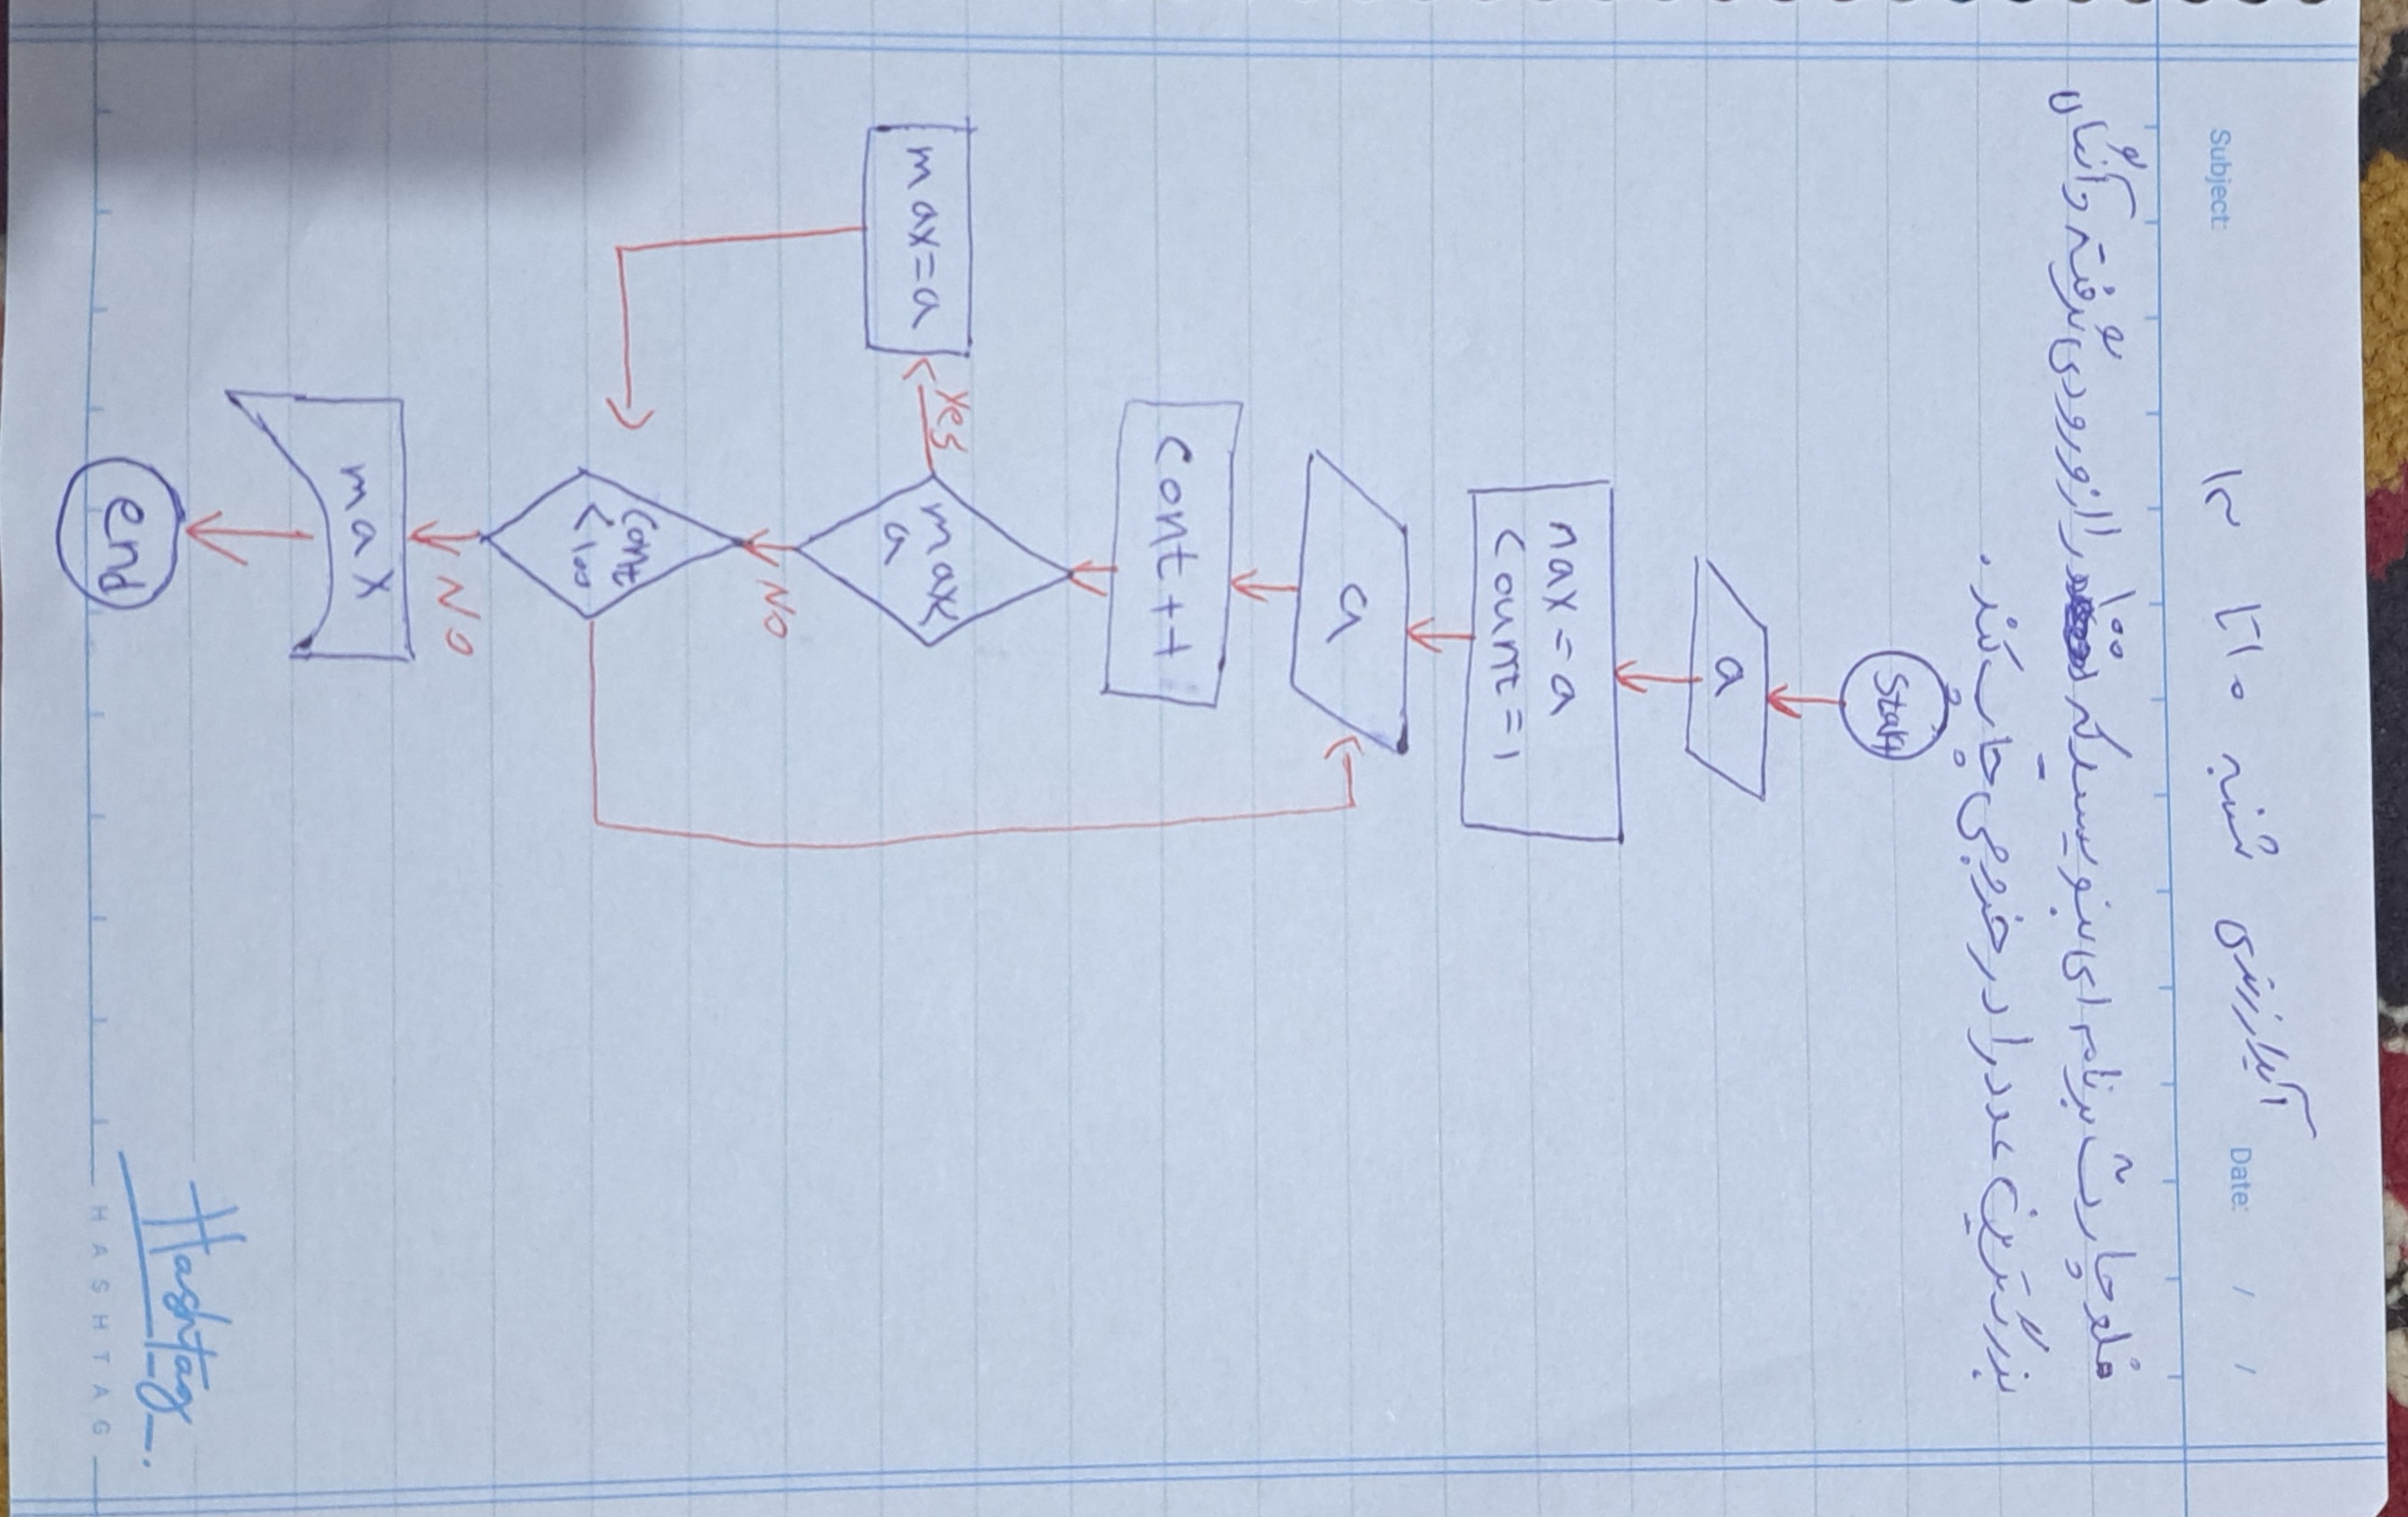 Subject:
Date: / /
آیلارزینی شنبه ۱۰ تا ۱۲
فلوچارت برنامه ای بنویسید که ۱۰۰ عدد را از ورودی گرفته و آنگاه
بزرگترین عدد را در خروجی چاپ کند.
Start
a
max = a
count = 1
a
cont ++
max
a
Yes
max = a
No
cont
< 100
No
max
end
Hashtag
HASHTAG